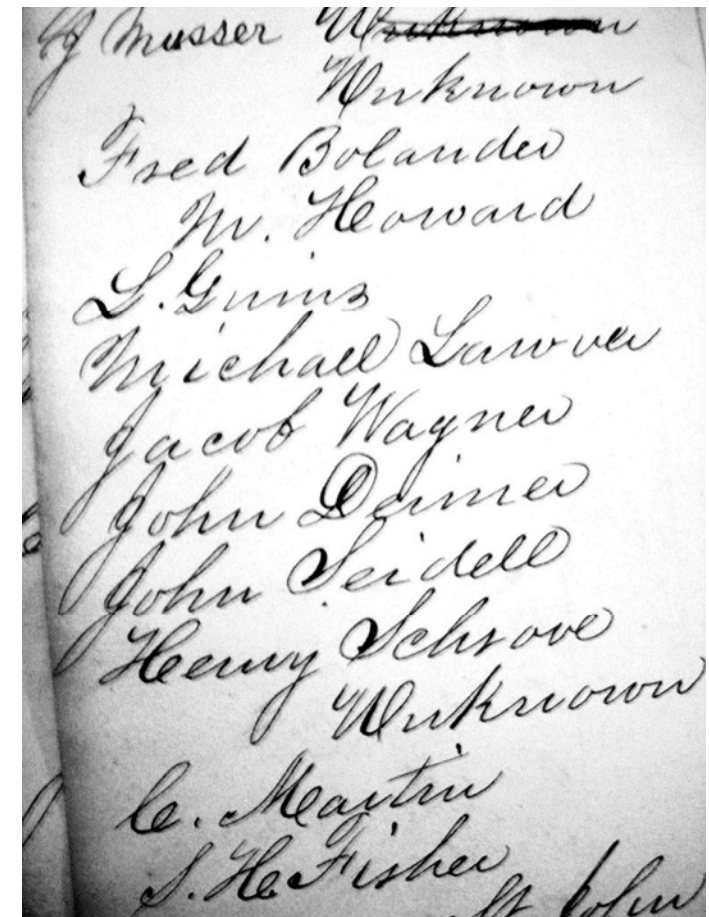 J Musser Unknown
Unknown
Fred Bolander
M. Howard
L. Guins
Michael Lawver
Jacob Wagner
John Deimer
John Seidell
Henry Schrove
Unknown
C. Martin
S. H. Fisher
St John